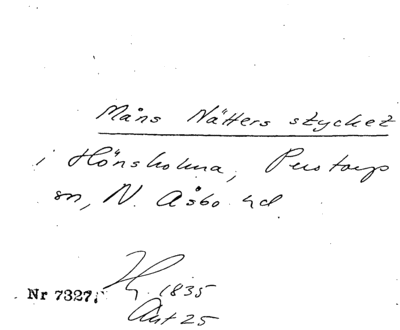 Måns Nätters stycket
i Hönsholma, Perstorps
sn, N. Åsbo hd.
Nr 7327. Hj. 1835
Ant 25